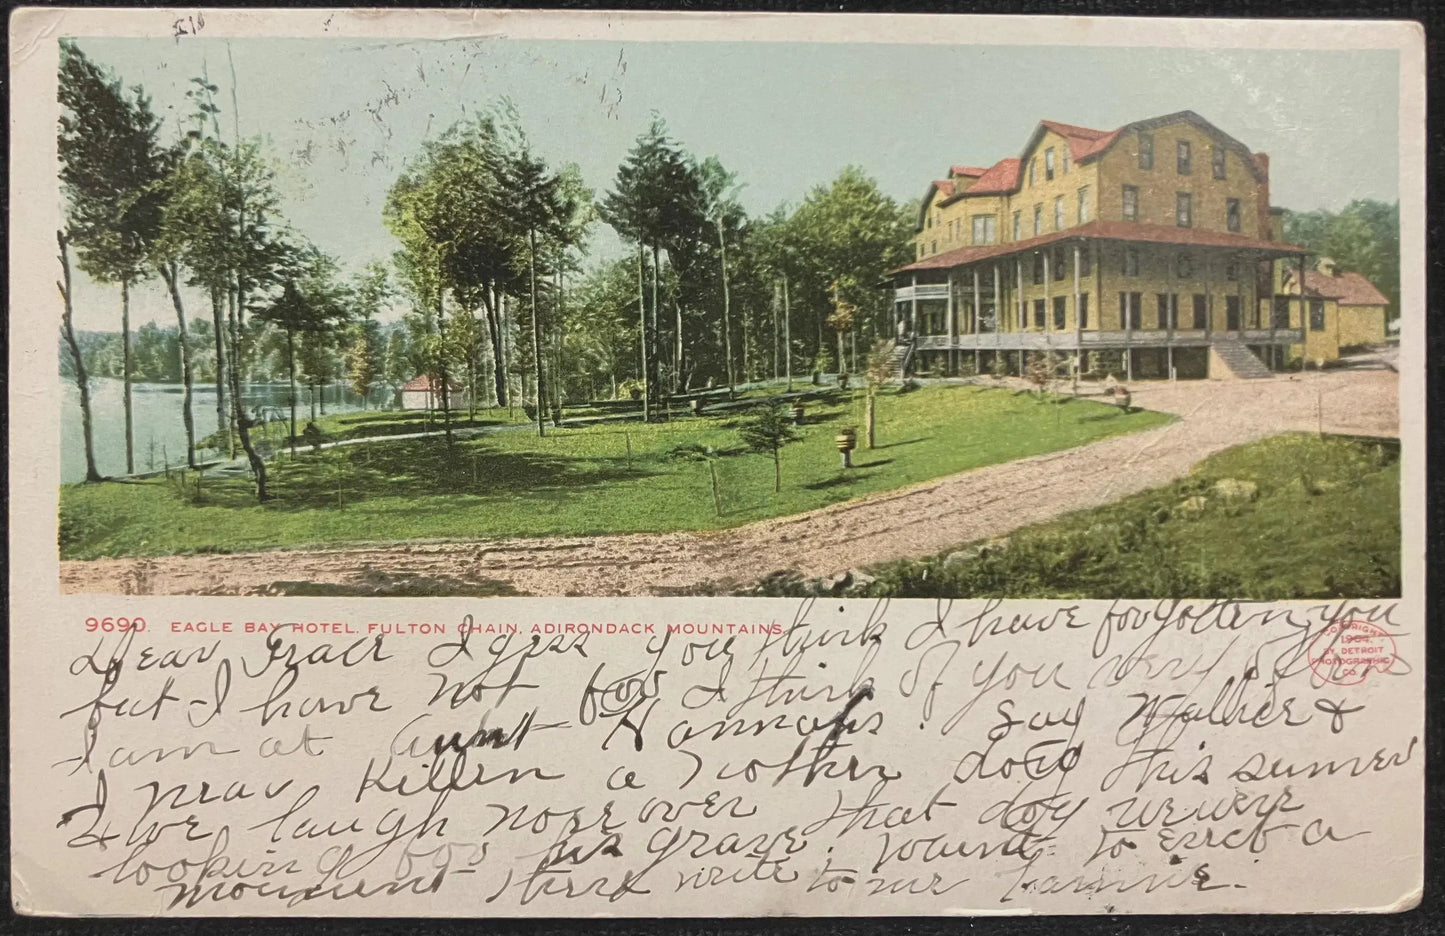 9690. EAGLE BAY HOTEL, FULTON CHAIN, ADIRONDACK MOUNTAINS.
COPYRIGHT 1904 BY DETROIT PHOTOGRAPHIC CO.
Dear I gess you think I have forgotten you
but I have not for I think of you very
I am at Aunt Hannahs. Say Wallice &
I Killen a nother dog this summer
& we laugh more over that dog we were
looking for his grave. want to erect a
monument there write to me